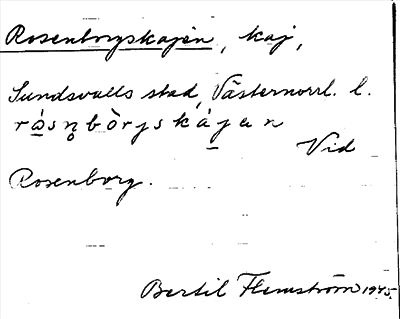 Rosenborgskajen, kaj,
Sundsvalls stad, Västernorrl. l.
rɷ́sn̥bòrjskájen
Vid
Rosenborg.
Bertil Flemström 1945.